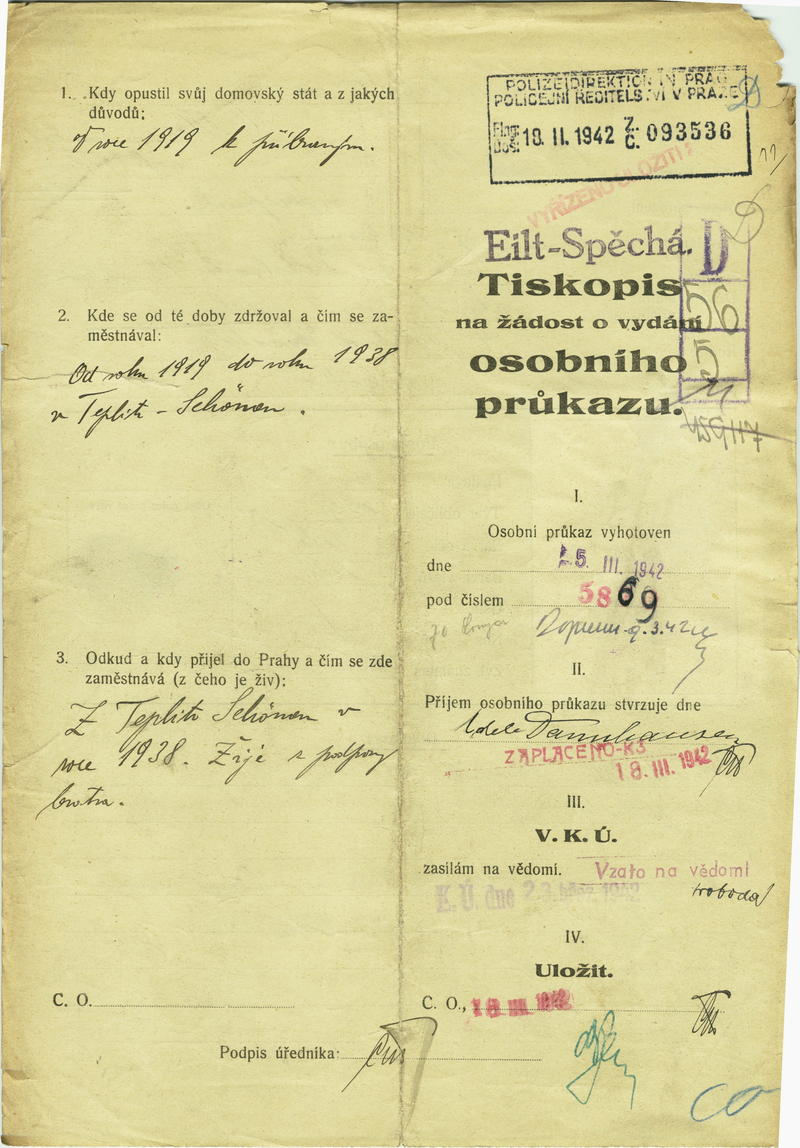 1. Kdy opustil svůj domovský stát a z jakých
důvodů:
V roce 1919 k příbuzným.
2. Kde se od té doby zdržoval a čím se za-
městnával:
Od roku 1919 do roku 1938
v Teplitz - Schönau.
3. Odkud a kdy přijel do Prahy a čím se zde
zaměstnává (z čeho je živ):
Z Teplitz Schönau v
roce 1938. Žije z podpory
bratra.
C. O.
Podpis úředníka:
POLIZEIDIREKTION IN PRAG
POLICEJNÍ ŘEDITELSTVÍ V PRAZE
Eing.
Doš.
18. II. 1942 Z. Č. 093536
11/
VYŘÍZENO ULOŽITI!
D
Eilt-Spěchá.
D
Tiskopis
56
na žádost o vydání
5
osobního
11
průkazu.
I.
Osobní průkaz vyhotoven
dne 15. III. 1942
pod číslem 5869
II.
Příjem osobního průkazu stvrzuje dne
Adele Dannhauser
ZAPLACENO-K3
18. III. 1942
III.
V. K. Ú.
zasílám na vědomí. Vzato na vědomí
K. Ú. dne 23. břez. 1942
IV.
Uložit.
C. O., 18 III. 1942